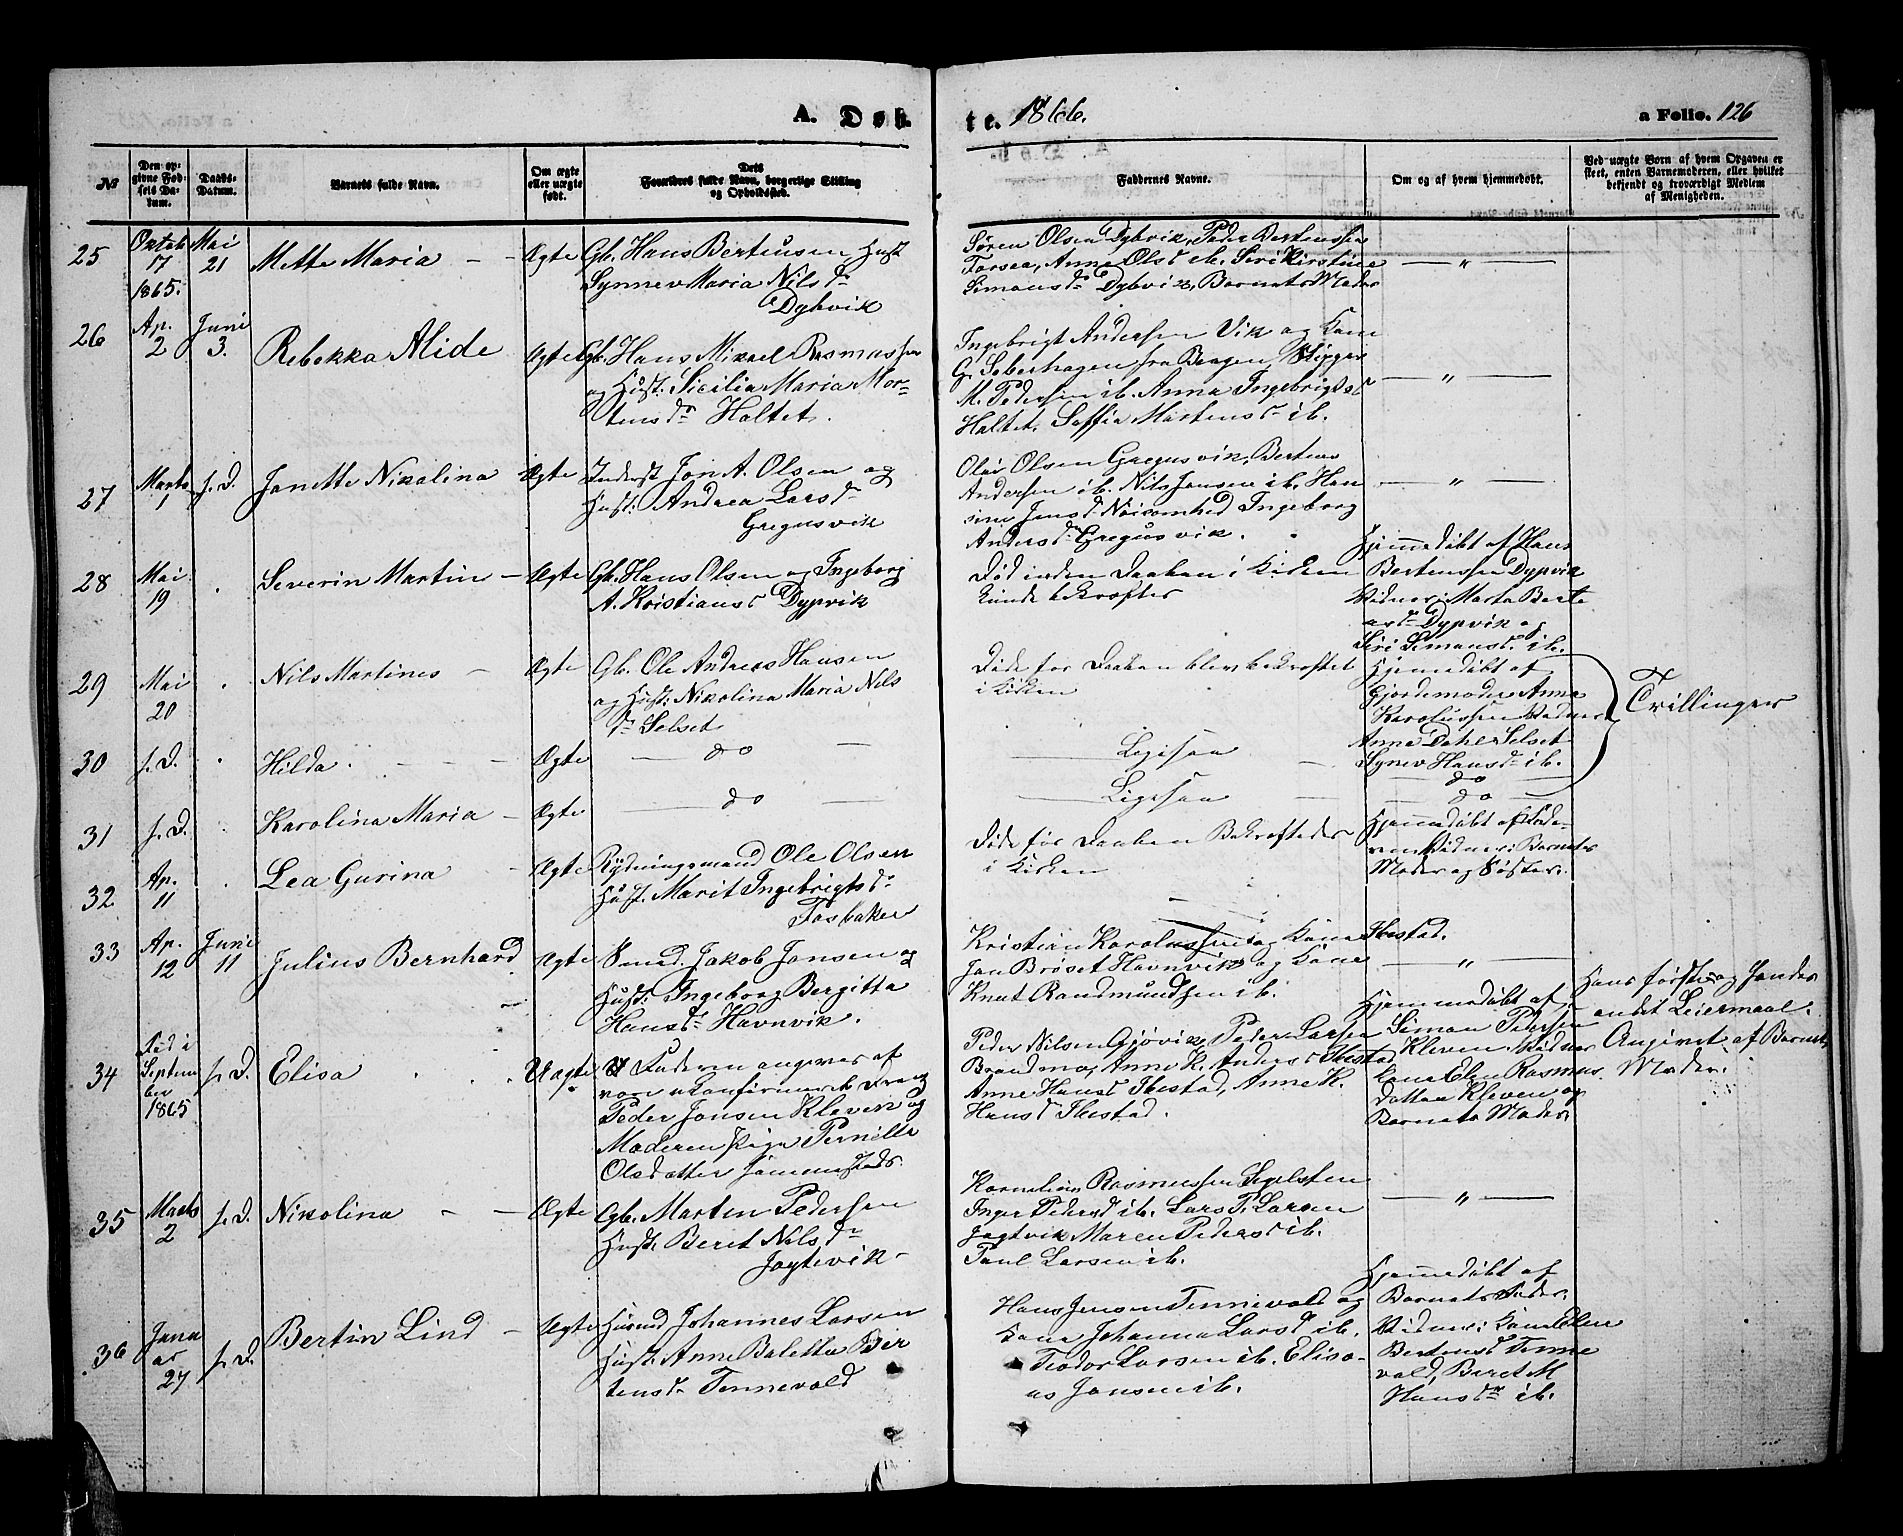 A. Døb-
te. 1866.
a Folio. 126
№
Den op-
givne Fød-
sels Da-
tum.
Daabs-
Datum.
Barnets fulde Navn.
Om ægte
eller uægte
født.
Dets
Forældres fulde Navn, borgerlige Stilling
og Opholdssted.
Faddernes Navne.
Om og af hvem hjemmedøbt.
Ved uægte Børn af hvem Opgaven er
skeet, enten Barnemoderen, eller hvilket
bekjendt og troværdigt Medlem
af Menigheden.
25
Oktob
17
1865.
Mai
21
Mette Maria
Ægte
Gb. Hans Bertensen Hust
Synnev Maria Nilsdr
Dybvik
Søren Olsen Dybvik, Peder Bertensen
Anne Olsd ib. Siri Kirstine
Simonsdr Dybvik, Barnets Moder
— " —
26
Ap.
2
Juni
3.
Rebekka Alide
Ægte
Gb. Hans Mikael Rasmussen
og Hust. Sicilia Maria Mor-
tensdr Haltet.
Ingebrigt Andersen Vik og Kone
G. fra Bergen, Skipper
M. Pedersen ib. Anna Ingebrigtsd
Haltet. Soffia Martensd ib.
— " —
27
Marts
1
s. D.
Janette Nikolina
Ægte
Inderst Jon A. Olsen og
Hust. Andrea Larsdr
Gregusvik
Ole Olsen Gregusvik, Berteus
Andersen ib. Nils Jensen ib. Han
sine Jensd Nøisomhed Ingeborg
Andersdr Gregusvik.
— " —
28
Mai
19
Severin Martin
Ægte
Gb. Hans Olsen og Ingeborg
A. Kristiansd Dypvik
Død inden Daaben i Kirken
kunde bekræftes
Hjemmedøbt af Hans
Bertensen Dypvik
Vidner: Marta Berte
asdr Dypvik og
Siri Simonsd. ib.
29
Mai
20
Nils Martines
Ægte
Gb. Ole Andreas Hansen
og Hust. Nikolina Maria Nils
dr Selset
Døde før Daaben blev bekræftet
i Kirken
Hjemmedøbt af
Gjordemoder Anne
Karolussen Vidner
Anne Dahl Selset
Synev Hansdr ib.
Trillinger
30
s. D.
Hilda.
Ægte
do
Ligesaa
do
31
s. D.
Karolina Maria
Ægte
do
Ligesaa
do
32
Ap.
11
Lea Gurina
Ægte
Rydningsmand Ole Olsen
Hust. Marit Ingebrigtsdr
Fosbaken
Døde før Daaben Bekræftedes
i Kirken
Hjemmedøbt af Fade-
ren Vidner: Barnets
Moder og Søster.
33
Ap.
12
Juni
11
Julius Bernhard
Ægte
Smed. Jakob Jansen og
Hust. Ingeborg Bergitta
Hansdr Havnvik.
Kristian Karolussen og Kone Ibestad.
Jan Brøset Havnvik og Kone
Knut Randmundsen ib.
— " —
34
Fød i
Septem
ber
1865
s. D.
Elisa
Uægte
Faderen angives af
være ukonfirmeret Dreng
Peder Jonsen Kleven og
Moderen Pige Pernille
Olsdatter
Peder Nilsen Gjøvik, Peder Larsen
Brandmo, Anne K. Andersd Ibestad
Anne Hansd Ibestad, Anne K.
Hansd Ibestad.
Hjemmedøbt af
Simon Pedersen
Kleven. Vidner
Kone Elen Rasmus
datter Kleven og
Barnets Moder
Hans første og hendes
andet Leiermaal.
Angivet af Barnets
Moder.
35
Marts
2
s. D.
Nikolina
Ægte
Gb. Marten Pedersen
Hust. Beret Nilsdr
Jagtevik
Kornelius Rasmussen
Inger Pedersd ib. Lars P. Larsen
Jagtvik Maren Pedersd ib.
Paul Larsen ib.
— " —
36
Janu
ar
27
s. D.
Bertin Lind
Ægte
Husmd Johannes Larsen
Hust. Anne Baletta Ber
tensdr Tennevold
Hans Jensen Tennevold og
Kone Johanna Larsd ib.
Teodor Larsen ib. Elisa-
as Jansen ib.
Hjemmedøbt af
Barnets Fader.
Vidner: Kone Elen
Bertensd Tenne
vold, Beret M
Hansdr ib.